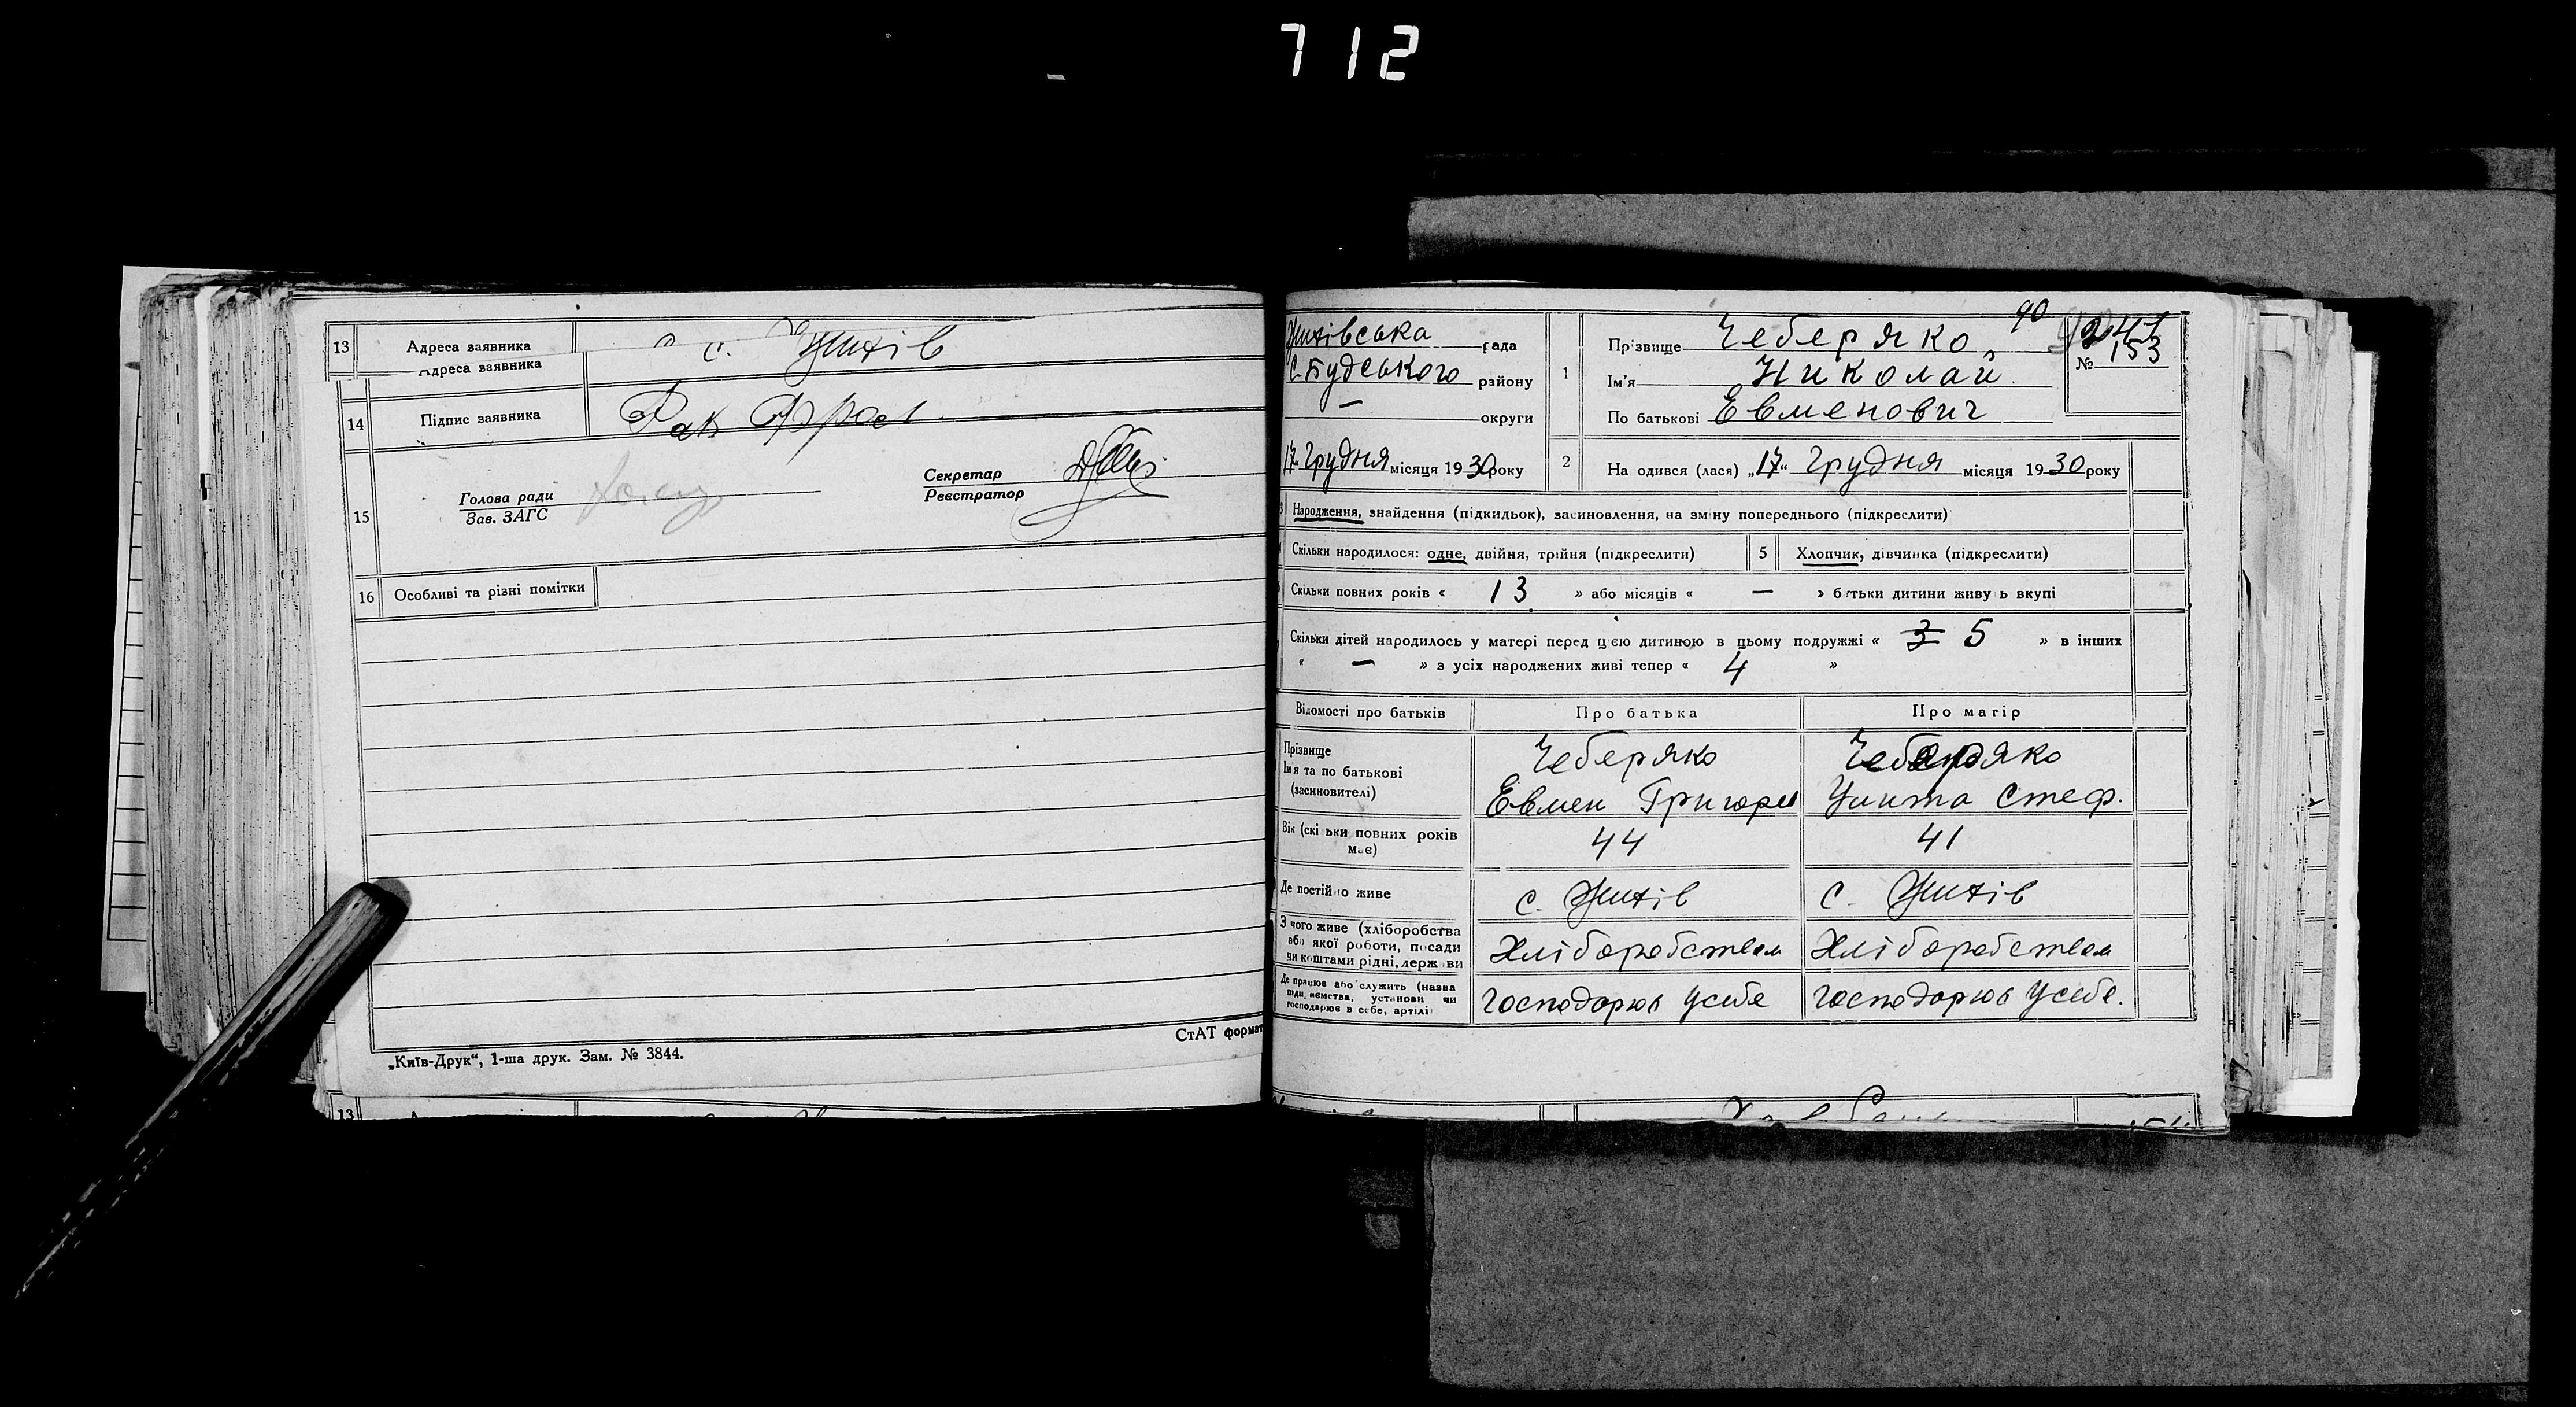 712
13 Адреса заявника с. Жихів
Адреса заявника
14 Підпис заявника Рак
15 Голова ради
Зав. ЗАГС
Секретар
Реєстратор
16 Особливі та різні помітки
„Київ-Друк“, 1-ша друк. Зам. № 3844.
СтАТ формат
13
Жихівська рада
С-Будського району
— округи
17 Грудня місяця 1930 року
1 Прізвище Чеберяко
Ім'я Николай
По батькові Евменович
90
241
№ 153
2 На одився (лася) „17“ Грудня місяця 1930 року
Народження, знайдення (підкидьок), засиновлення, на зміну попереднього (підкреслити)
Скільки народилося: одне, двійня, трійня (підкреслити)
5 Хлопчик, дівчинка (підкреслити)
Скільки повних років « 13 » або місяців « — » б тьки дитини живу ь вкупі
Скільки дітей народилось у матері перед цією дитиною в цьому подружжі « 3 5 » в інших
« — » з усіх народжених живі тепер « 4 »
Відомості про батьків Про батька Про матір
Прізвище Чеберяко Чеберяко
Ім'я та по батькові
(засиновителі) Евмен Григорев Улита Стеф.
Вік (скі ьки повних років
має) 44 41
Де постійно живе с. Жихів с. Жихів
З чого живе (хліборобства
або якої роботи, посади
чи коштами рідні, держ ви Хліборобством Хліборобством
Де працює або служить (назва
підприємства, установи чи
господарює в себе, артілі) Господорює у себе Господорює у себе.